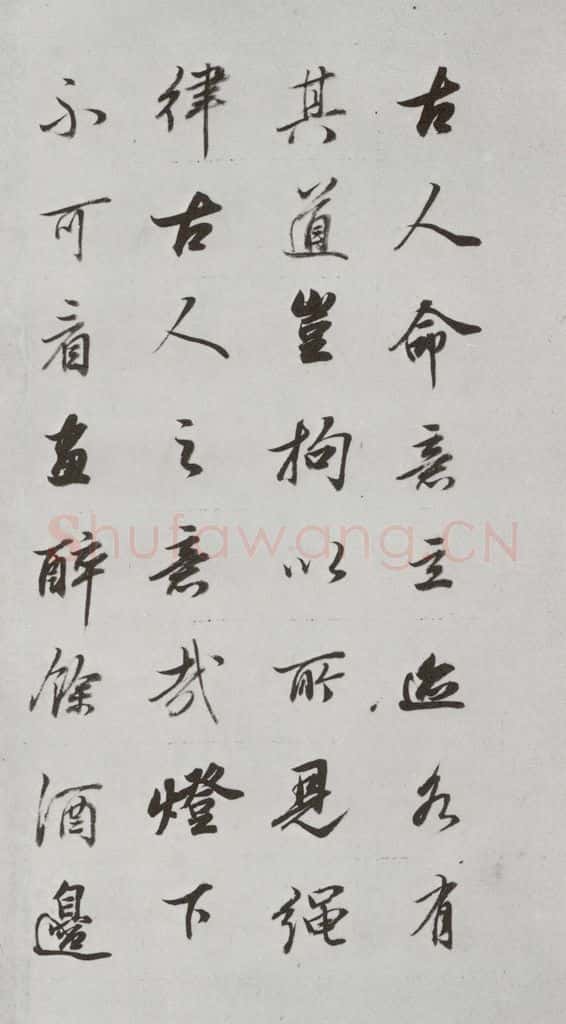 古人命意立迹各有
其道豈拘以所見繩
律古人之意哉燈下
不可看畫醉餘酒邊
Shufawang.CN